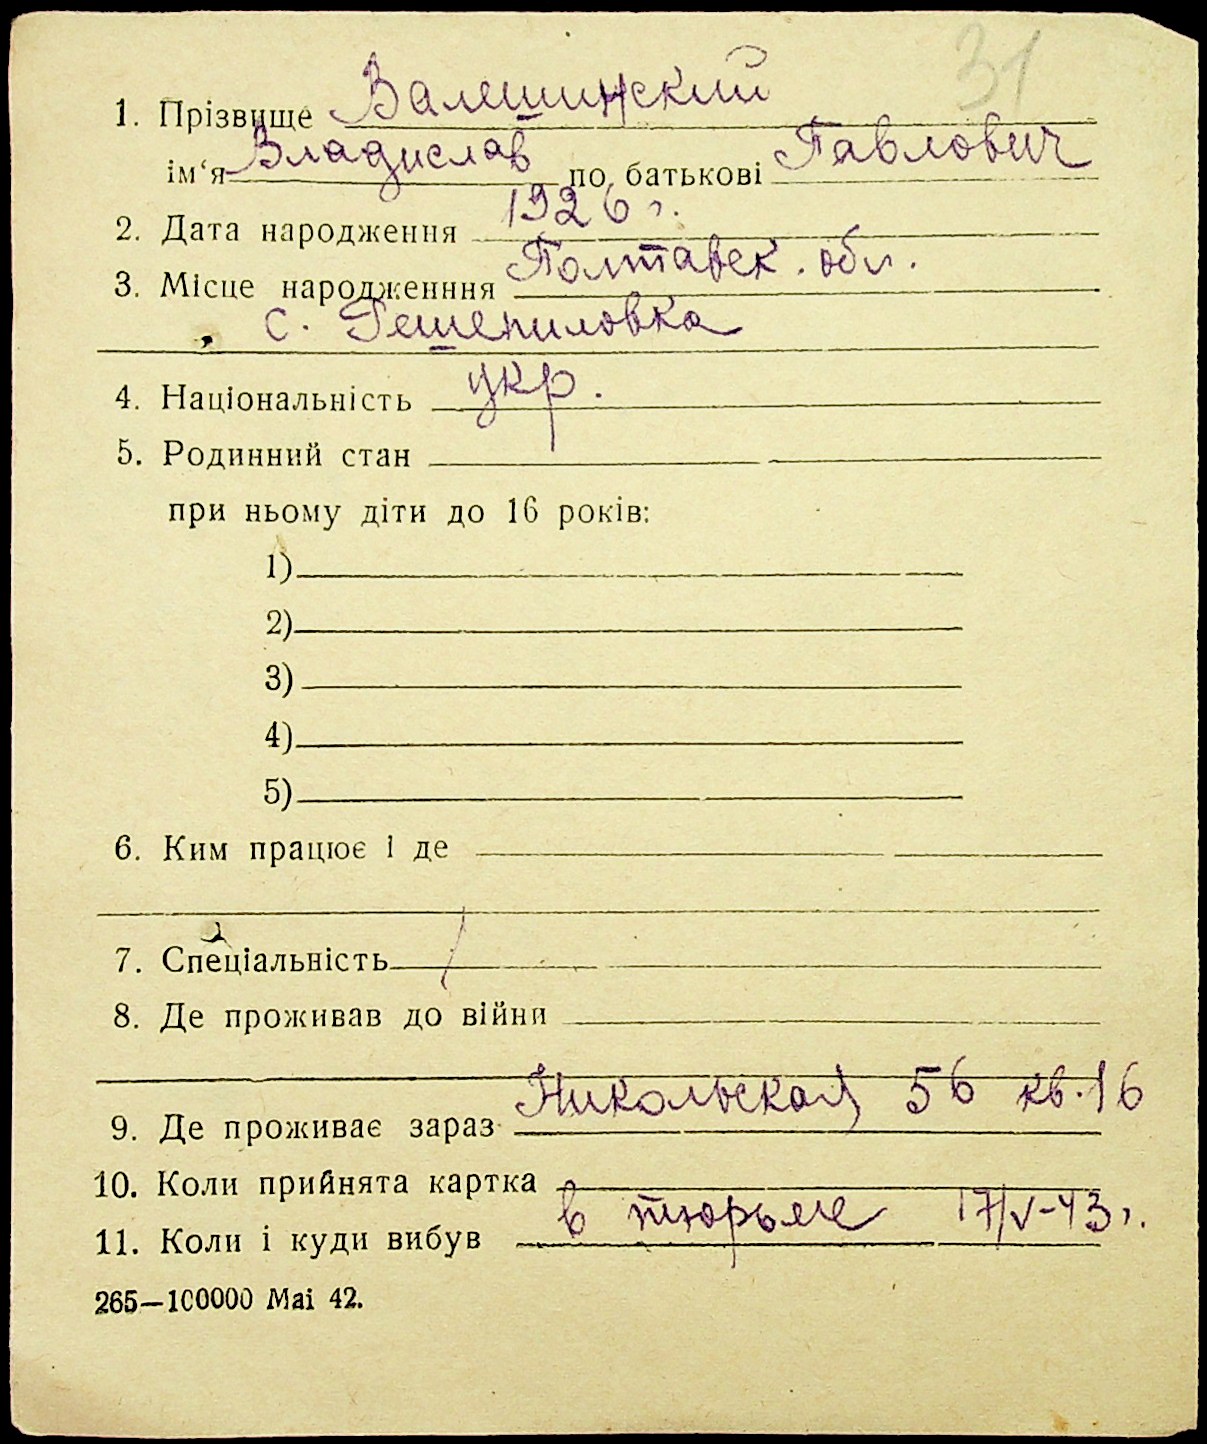 31
1. Прізвище Валешинский
ім‘я Владислав по батькові Павлович
2. Дата народження 1926 г.
3. Місце народженння Полтавск. обл.
с. Решетиловка
4. Національність укр.
5. Родинний стан
при ньому діти до 16 років:
1)
2)
3)
4)
5)
6. Ким працює і де
7. Спеціальність
8. Де проживав до війни
9. Де проживає зараз Никольская 56 кв. 16
10. Коли прийнята картка
11. Коли і куди вибув в тюрьме 17/V-43 г.
265—100000 Mai 42.